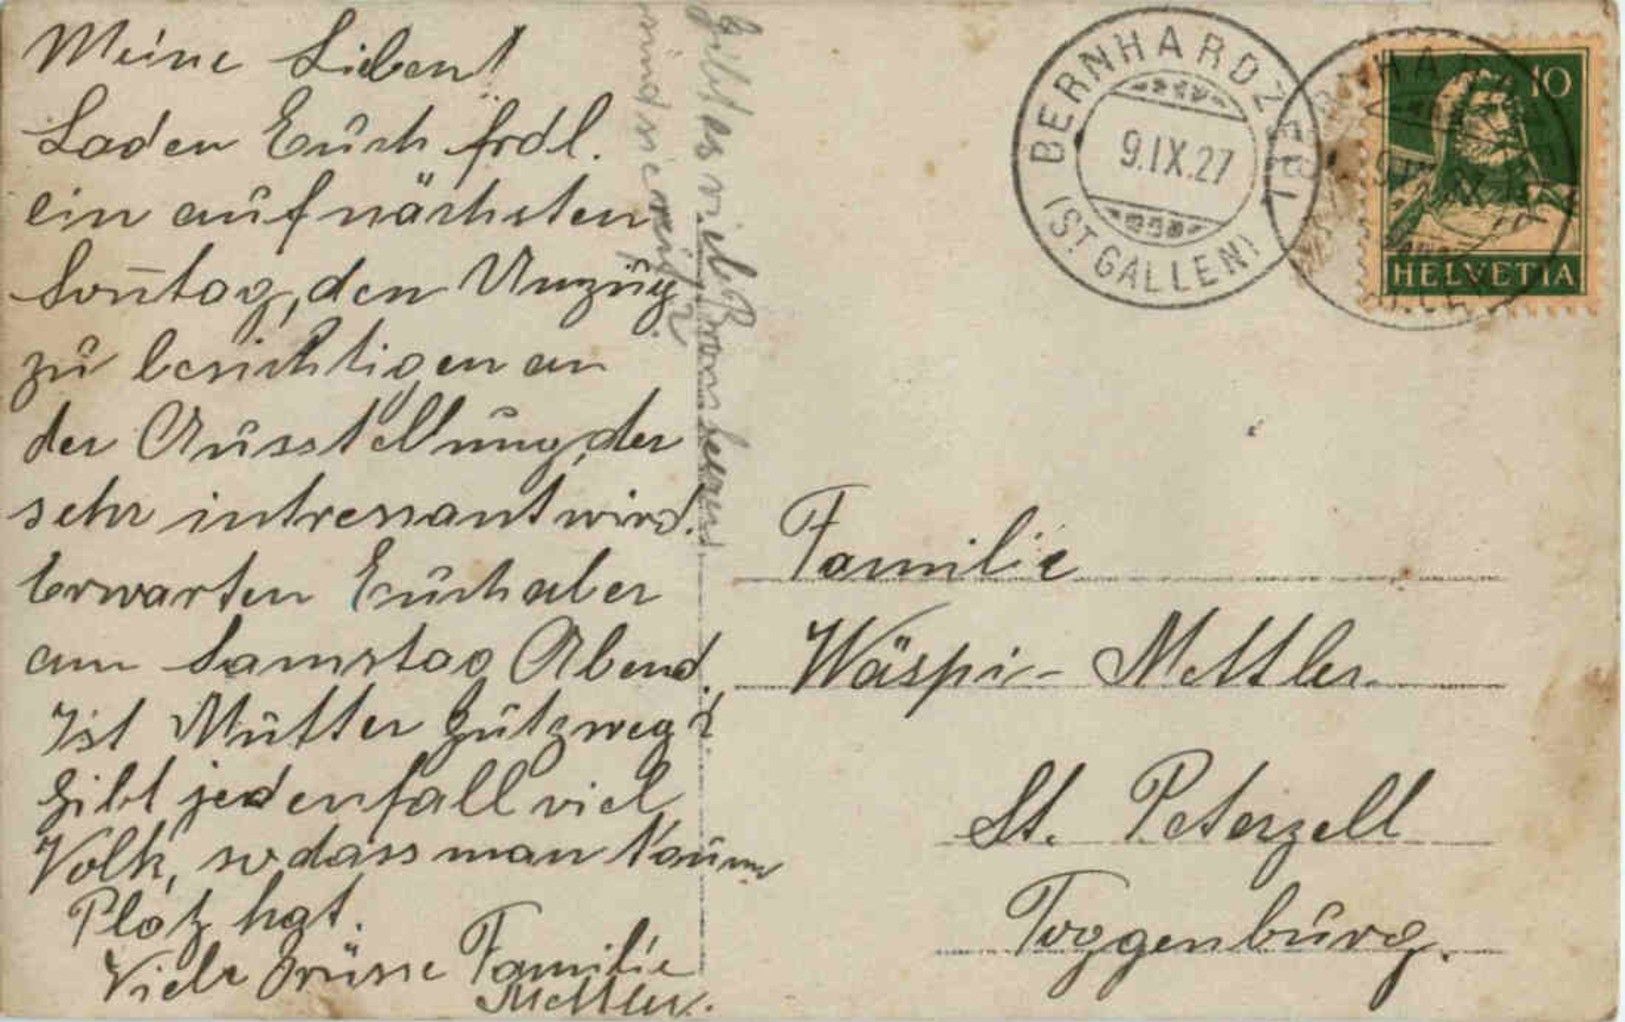 Meine Lieben!
Laden Euch frdl.
ein auf nächsten
Sontag, den Umzug
zu besichtigen an
der Ausstellung, der
sehr intressant wird.
Erwarten Euch aber
am Samstag Abend.
Ist Mutter Gutzweg?
Gibt jedenfall viel
Volk, sodass man kaum
Platz hat.
Viele Grüsse Familie
Mettler.
Gibt es viel
BERNHARDZELL
9.IX.27
(ST. GALLEN)
10
HELVETIA
Familie
Wäspi-Mettler.
St. Peterzell
Toggenburg.